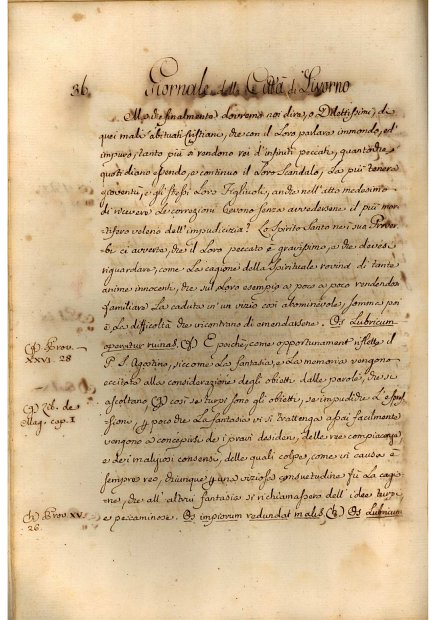 36. Giornale della Città di Livorno
Ma, che finalmente dovremo noi dire, o Dilettissimi, di
quei mali abituati Cristiani, che con il Loro parlare immondo, ed
impuro, tanto più si rendono rei d'infiniti peccati, quanto che
quotidiano essendo, e continuo il Loro Scandalo, La più tenera
gioventù, e gli stessi Loro Figliuoli, anche nell'atto medesimo
di ricevere le correzioni bevono senza avvedersene il più mor-
tifero veleno dell'impudicizia? Lo Spirito Santo ne' suoi Prover-
bi ci avverte, che il Loro peccato è gravissimo, e che devesi
riguardare, come La cagione della Spirituale rovina di tante
anime innocenti, che sul Loro esempio a poco a poco rendendosi
familiare La caduta in un vizio così abominevole, somma poi
è La difficoltà che incontrano di emendarsene. Os Lubricum
operatur ruinas, E poichè, come opportunamente riflette il
P. S. Agostino, siccome La fantasia, e La memoria vengono
eccitate alla considerazione degli obietti dalle parole, che si
ascoltano, così se turpi sono gli obietti, se impudiche L'espres-
sione, poco che La fantasia vi si trattenga assai facilmente
vengono a concepirsi dei pravi desideri, delle ree compiacenze,
e dei maliziosi consensi, delle quali colpe, come vi causa è
sempre reo, chiunque una viziosa consuetudine fù La cagio-
ne, che all'altrui fantasia si richiamassero dell'idee turpi
e peccaminose. Os impiorum redundat malis, Os Lubricum
Prov.
XXVI. 28
Lib. de
Mag. cap. I
Prov. XV.
28.